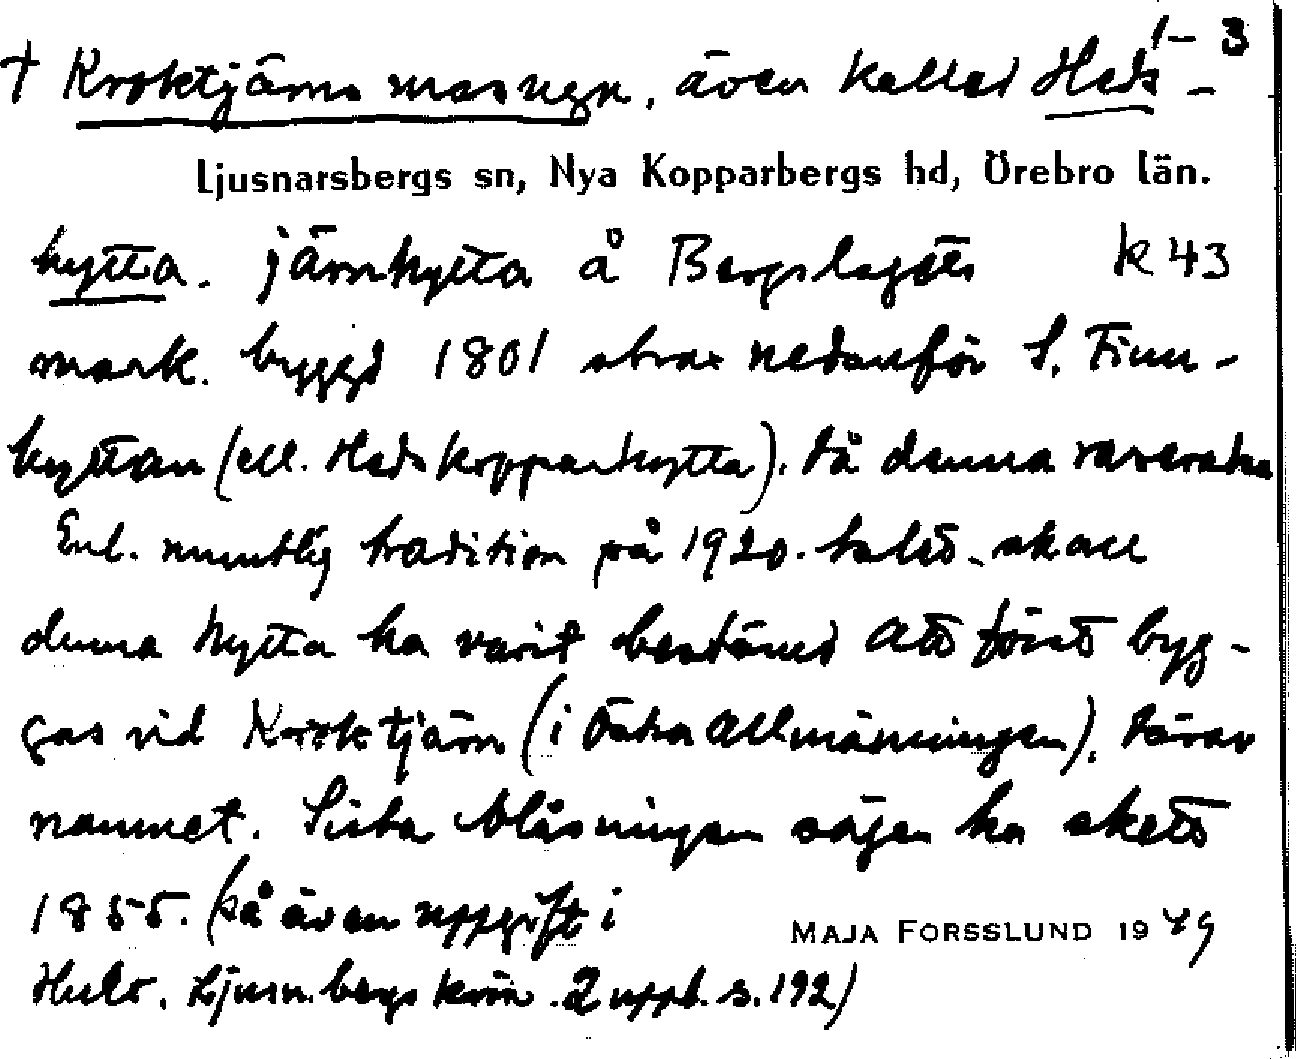 1–3
† Kroktjärns masugn, även kallad Heds-
Ljusnarsbergs sn, Nya Kopparbergs hd, Örebro län.
hytta. järnhytta å Bergslagets k 43
mark. byggd 1801 strax nedanför S. Finn-
hyttan (ell. Heds kopparhytta), då denna raserades
Enl. muntlig tradition på 1920-talet skall
denna hytta ha varit bestämd att först byg-
gas vid Kroktjärn (i Östra Allmänningen), därav
namnet. Sista blåsningen säges ha skett
1855. (så även uppgift i
MAJA FORSSLUND 1949
Hult. Ljusn.bergs krön. 2 uppl. s. 192)